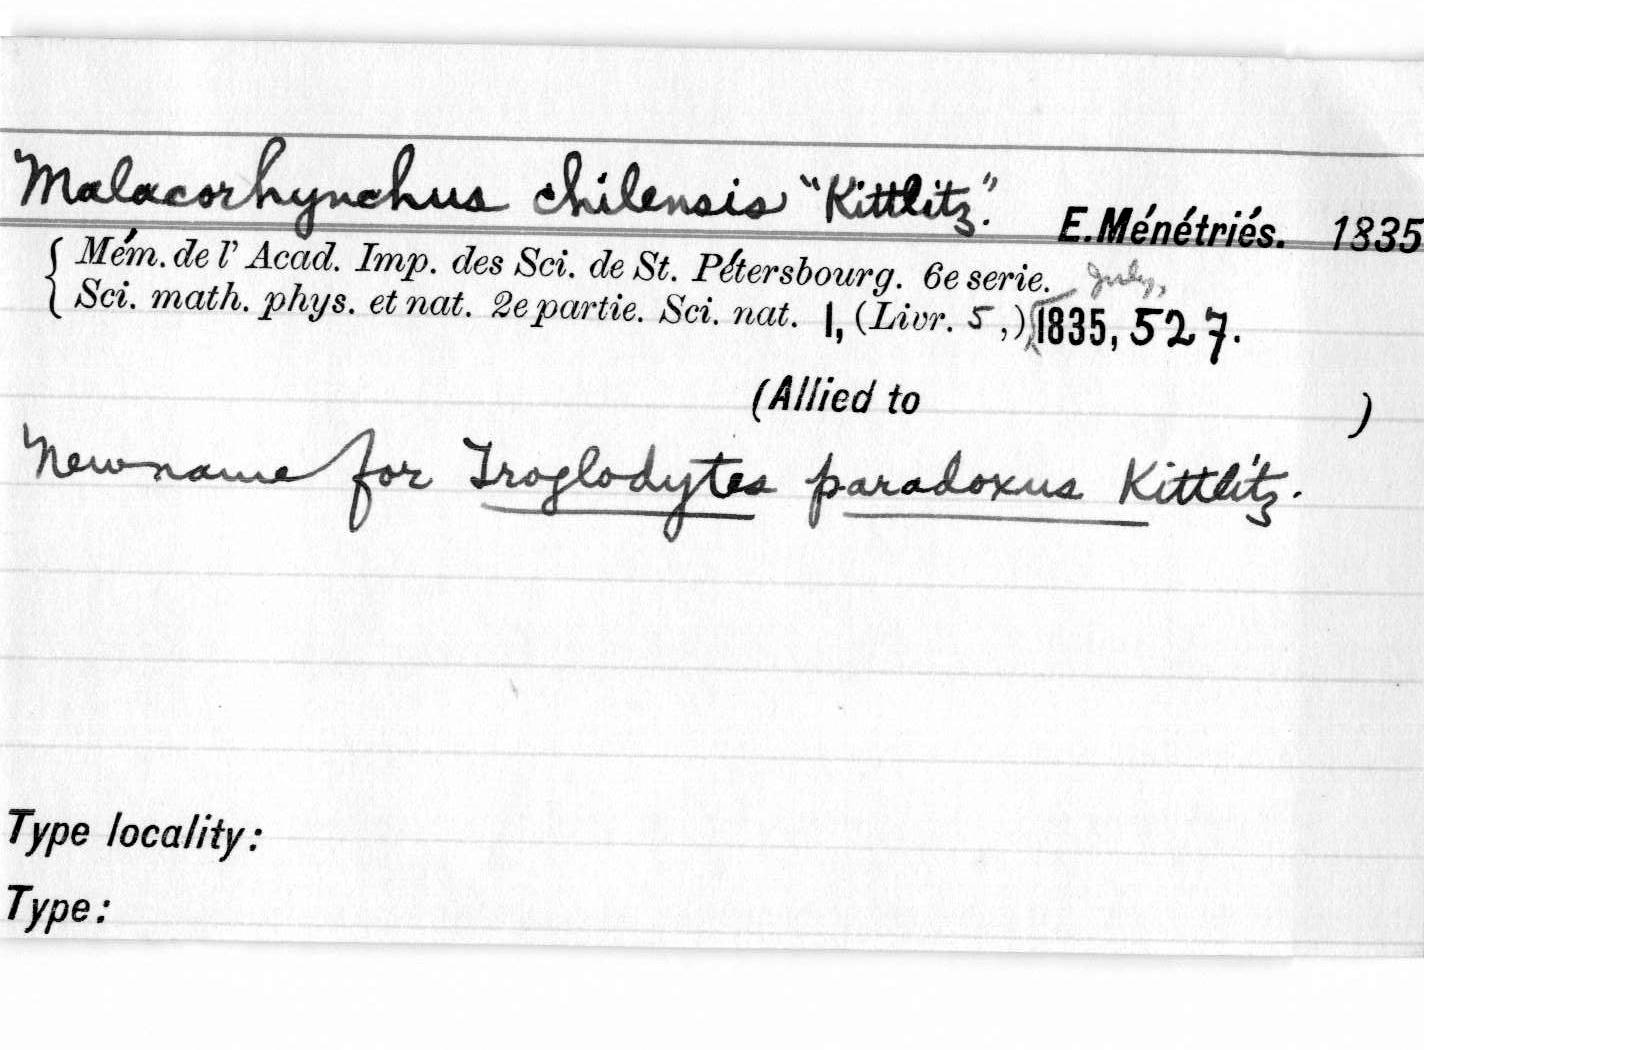 Malacorhynchus chilensis "Kittlitz." E.Ménétriés. 1835
Mém. de l' Acad. Imp. des Sci. de St. Pétersbourg. 6e serie.
Sci. math. phys. et nat. 2e partie. Sci. nat. 1, (Livr. 5,) July, 1835, 527.
(Allied to )
New name for Troglodytes paradoxus Kittlitz.
Type locality:
Type: